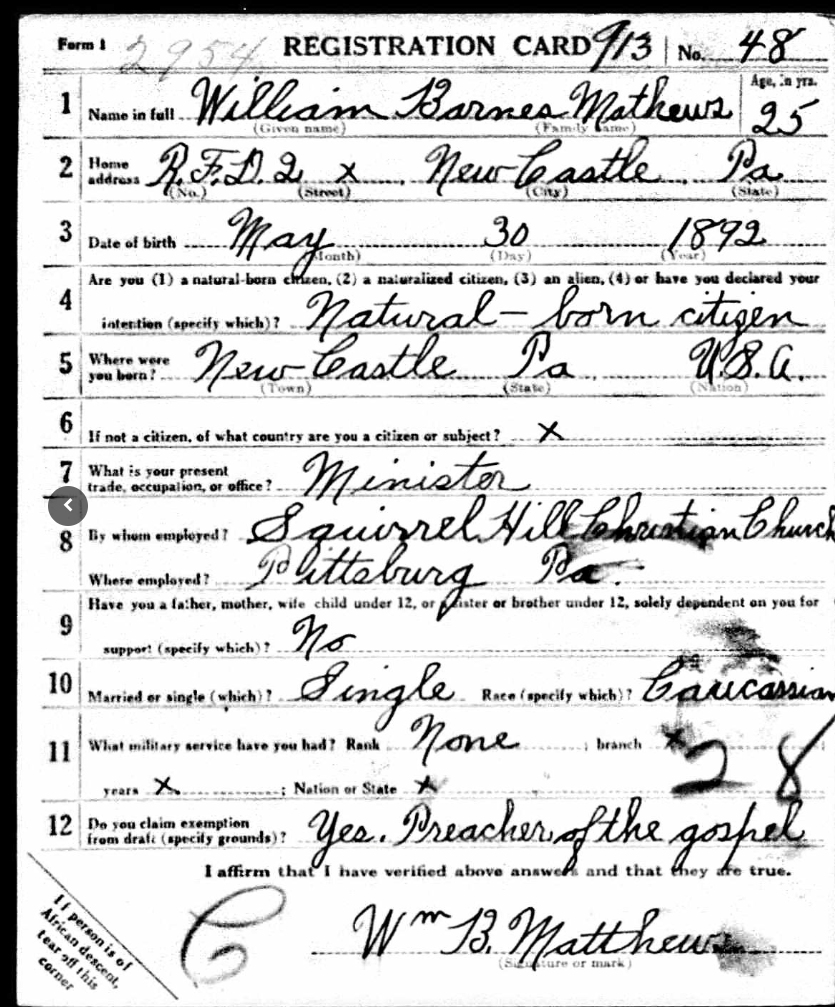 Form 1 2954 REGISTRATION CARD 913 No. 48
1 Name in full William Barnes Mathews Age, in yrs. 25
(Given name) (Family name)
2 Home address R.F.D. 2 x New Castle Pa
(No.) (Street) (City) (State)
3 Date of birth May 30 1892
(Month) (Day) (Year)
Are you (1) a natural-born citizen, (2) a naturalized citizen, (3) an alien, (4) or have you declared your
4 intention (specify which)? Natural-born citizen
5 Where were you born? New Castle Pa U.S.A.
(Town) (State) (Nation)
6 If not a citizen, of what country are you a citizen or subject? x
7 What is your present trade, occupation, or office? Minister
8 By whom employed? Squirrel Hill Christian Church
Where employed? Pittsburg Pa.
Have you a father, mother, wife child under 12, or a sister or brother under 12, solely dependent on you for
9 support (specify which)? No
10 Married or single (which)? Single Race (specify which)? Caucassian
11 What military service have you had? Rank None ; branch x
28
years x ; Nation or State x
12 Do you claim exemption from draft (specify grounds)? Yes. Preacher of the gospel
I affirm that I have verified above answers and that they are true.
C Wm B. Matthews
(Signature or mark)
If person is of
African descent,
tear off this
corner